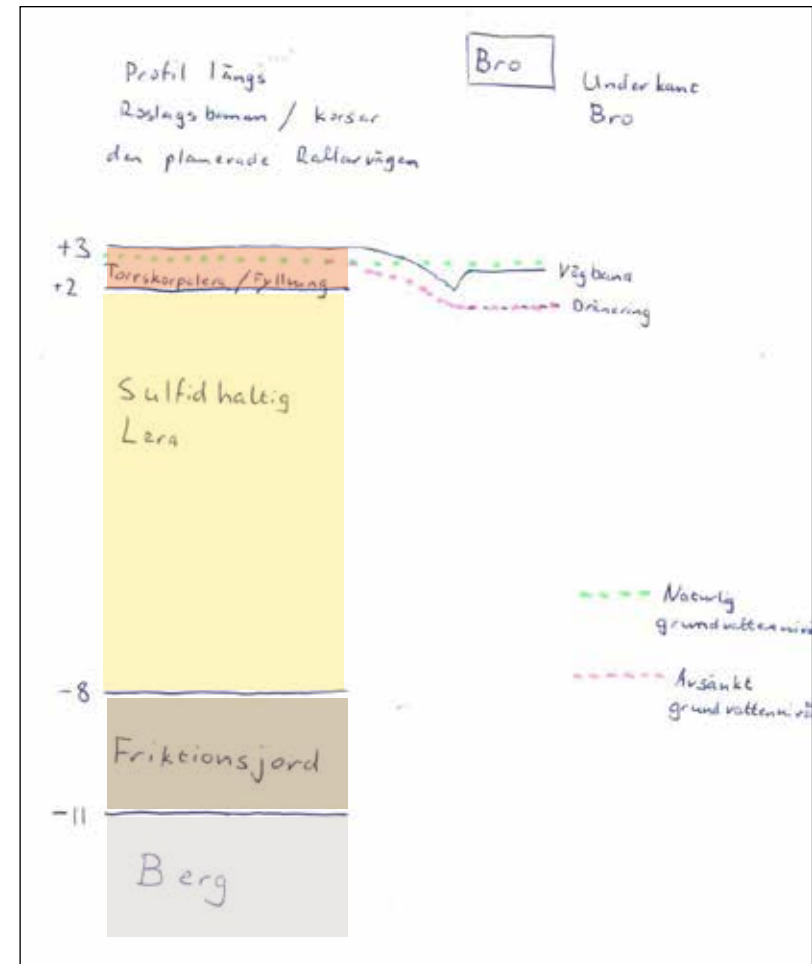 Profil längs
Roslagsbanan / korsar
den planerade Rallarvägen
Bro
Underkant
Bro
+3
Torrskorpelera / Fyllning
+2
Vägbana
Dränering
Sulfidhaltig
Lera
Naturlig
grundvattennivå
-8
Avsänkt
grundvattennivå
Friktionsjord
-11
Berg